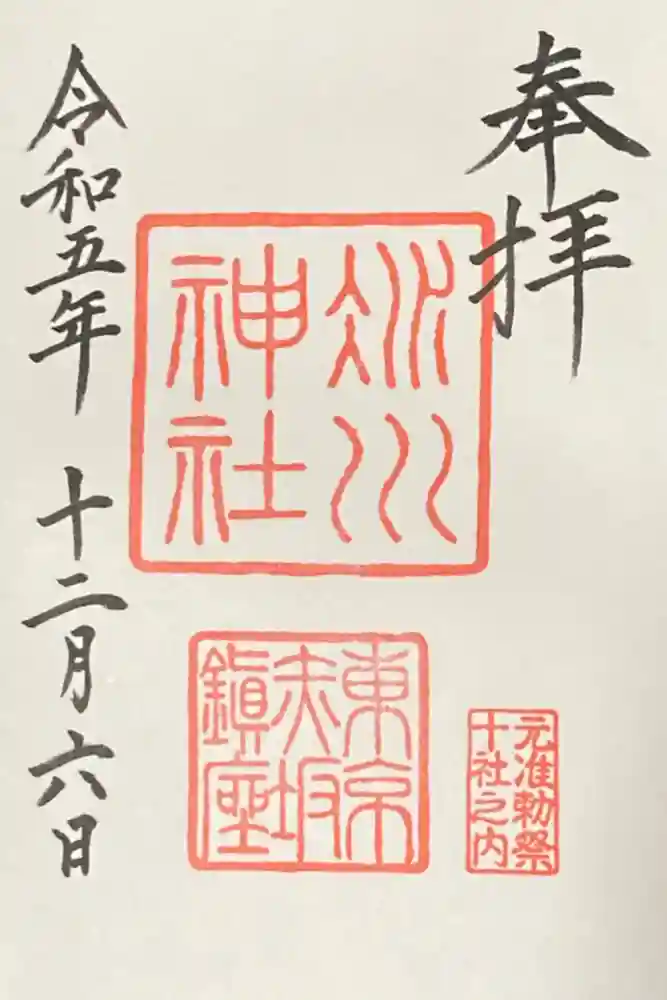 奉拝
氷川
神社
東京
赤坂
鎮座
元准勅祭
十社之内
令和五年 十二月六日